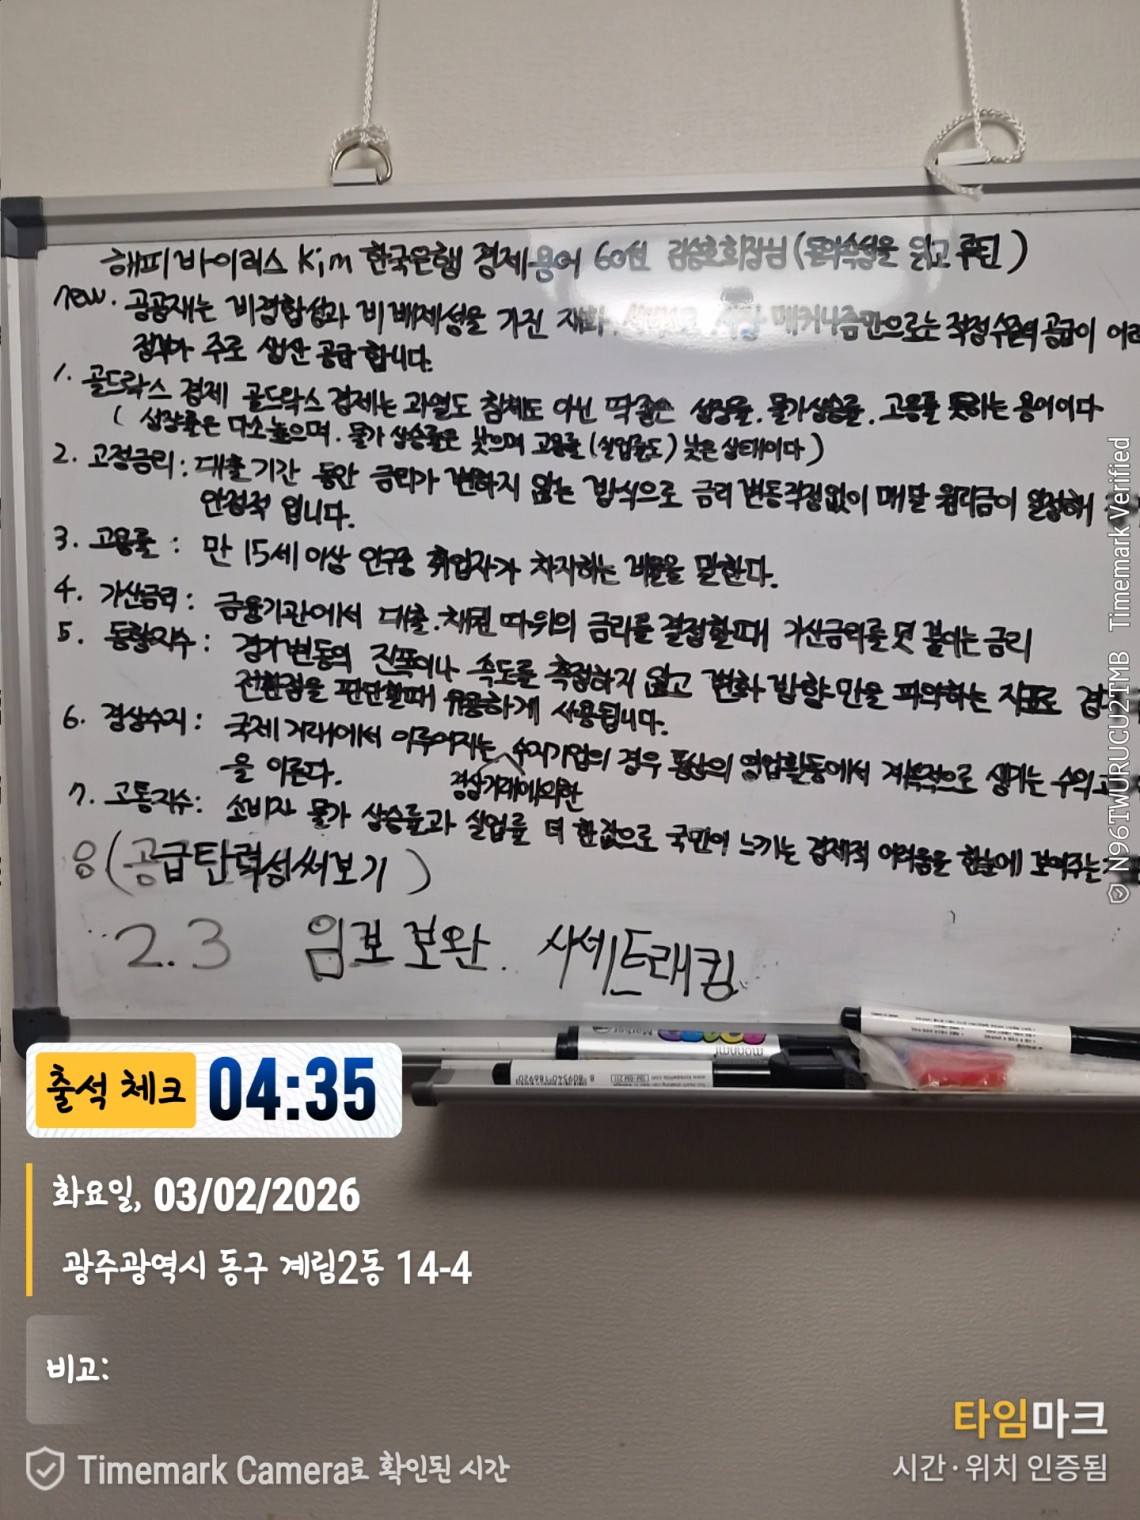 해피바이러스 Kim 한국은행 경제용어 60선 김승호회장님 (돈의속성을 읽고 루틴)
new. 공공재는 비경합성과 비배제성을 가진 재화, 시장 메커니즘만으로는 적정수준의 공급이 어려
정부가 주로 생산 공급 합니다.
1. 골드락스 경제 골드락스 경제는 과열도 침체도 아닌 딱좋은 성장률. 물가상승률. 고용률 뜻하는 용어이다
( 성장률은 다소높으며. 물가 상승률은 낮으며 고용률 (실업률도) 낮은 상태이다)
2. 고정금리: 대출기간 동안 금리가 변하지 않는 방식으로 금리 변동걱정없이 매달 원리금이 일정해
안정적 입니다.
3. 고용률 : 만 15세 이상 인구중 취업자가 차지하는 비율을 말한다.
4. 가산금리: 금융기관에서 대출.채권 따위의 금리를 결정할때 가산금리를 덧 붙이는 금리
5. 동행지수: 경기변동의 진폭이나 속도를 측정하지 않고 변화 방향만을 파악하는 지표로
전환점을 판단할때 유용하게 사용됩니다.
6. 경상수지: 국제 거래에서 이루어지는 수지기업의 경우 통상의 영업활동에서 계속적으로 생기는 수익
을 이른다.
경상거래에의한
7. 고통지수: 소비자 물가 상승률과 실업률 더한값으로 국민이 느끼는 경제적 어려움을 한눈에 보여주는
8 (공급탄력성써보기 )
2.3 임보보완. 시세트래킹
monami
Marker
출석 체크 04:35
화요일, 03/02/2026
광주광역시 동구 계림2동 14-4
비고:
타임마크
Timemark Camera로 확인된 시간
시간·위치 인증됨
N96TWURUCU2TMB Timemark Verified